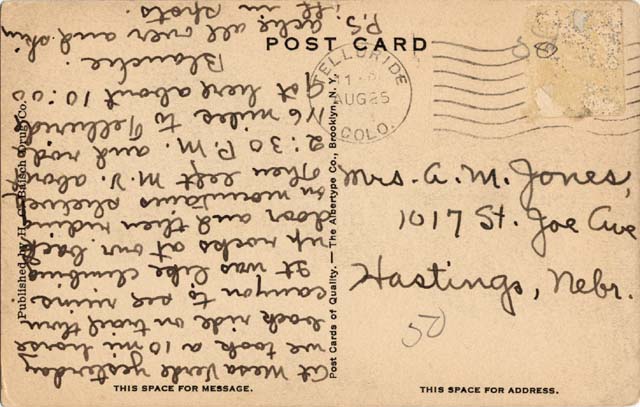 POST CARD
TELLURIDE
AUG 25
COLO.
Mrs. A. M. Jones,
1017 St. Joe Ave
Hastings, Nebr.
50
THIS SPACE FOR ADDRESS.
THIS SPACE FOR MESSAGE.
Post Cards of Quality. — The Albertype Co., Brooklyn, N. Y.
Published by H. C. Baisch Drug Co.
At Mesa Verde yesterday
we took a 10 mi horse
back ride on trail thru
canyon to see ruins
It was like climbing
up rocks at our back
door and then riding
on mountains
Then left M.V. about
2:30 P.M. and rode
116 miles to Telluride
Got here about 10:00
Blanche.
P.S. ache all over and skin
off in spots.